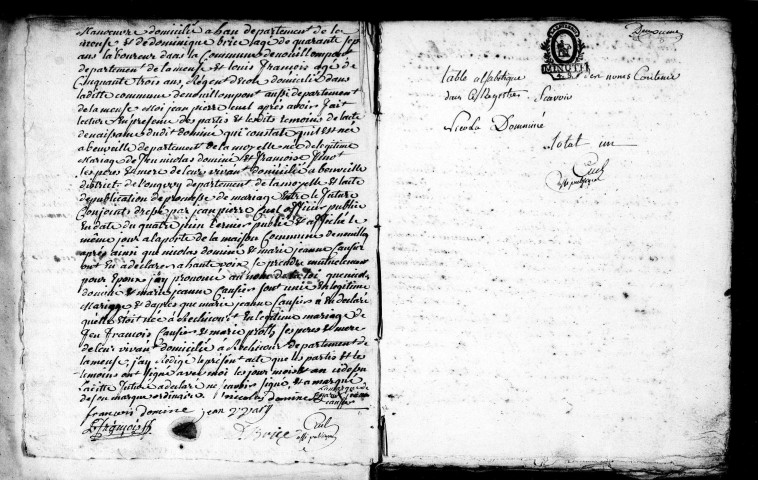 Manœuvre domicilié a han departement de la
meuse & de dominique brice agé de quarante sep
ans laboureur dans la Commune denouillompont
departement de la meuse & louis François agé de
Cinquante trois ans Regent decole domicilié dans
laditte commune denouillompont aussi departement
de la meuse & moi jean pierre Cuel après avoir fait
lecture En presence des partis & lesdits temoins de lacte
denaissance dudit domine qui constate quil est né
a beuveille departement de la moyelle né de legitime
Mariage de feu nicolas domine & francoise
les pere & mere de leur vivant domicilié a beuveille
district de longwy departement de la moyelle & lacte
de publication de promesse de mariage entre le future
Conjoint dressé par jean pierre Cuel officier public
En date du quatre juin dernier publié & affiché le
même jour a la porte de la maison Commune de nouillo
après aussi qui nicolas domine & marie jeanne
ont En adeclare a haute voix se prendre mutuellement
pour Epoux j'ay prononcé au nom de la loi que nicolas
domine & marie jeanne sont unie En legitime
Mariage & daprès que marie jeanne a En declaré
quelle etoit née a Rechicour En legitime mariage de
feu François & marie ses pere & mere
de leur vivant domicilié a Rechicour departement de
la meuse, j'ay Redigé le present acte que les partis & les
temoins ont signé avec moi les jour mois & an cidessus
Laditte future adeclaré ne savoir signé, & a marqué
de sa marque ordinaire. nicolas domine La marque de
marie jeanne
francois domine jean
L françois D Brice Cuel
offi publique
Dommine
MINUTE
table alfabetique des noms Contenu
dans Ce Registre Scavoir
Nicola Dommine
total un
Cuel
offi publique